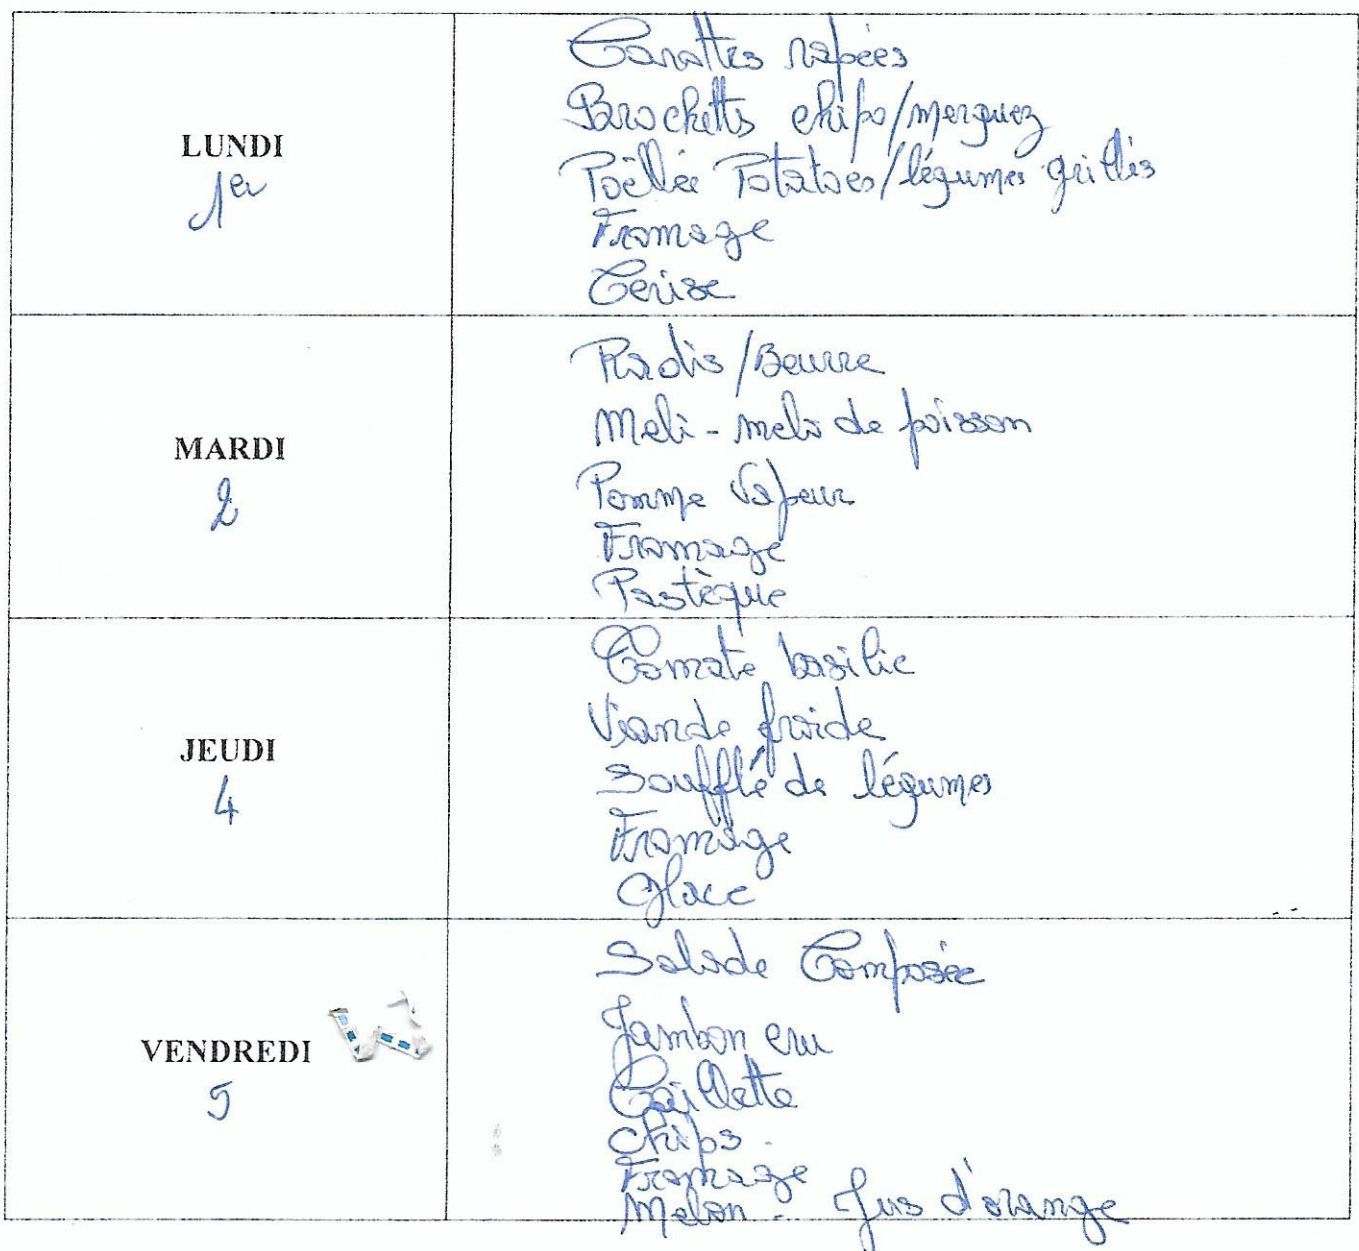 LUNDI
1er
Carottes rapées
Brochetts chipo/merguez
Poëlée Potatoes/légumes grillés
Fromage
Cerise
MARDI
2
Radis/Beurre
Meli-melo de poisson
Pomme Vapeur
Fromage
Pastèque
JEUDI
4
Tomate basilic
Viande froide
Soufflé de légumes
Fromage
Glace
VENDREDI
5
Salade Composée
Jambon cru
Caillette
Chips.
Fromage
Melon - Jus d'orange